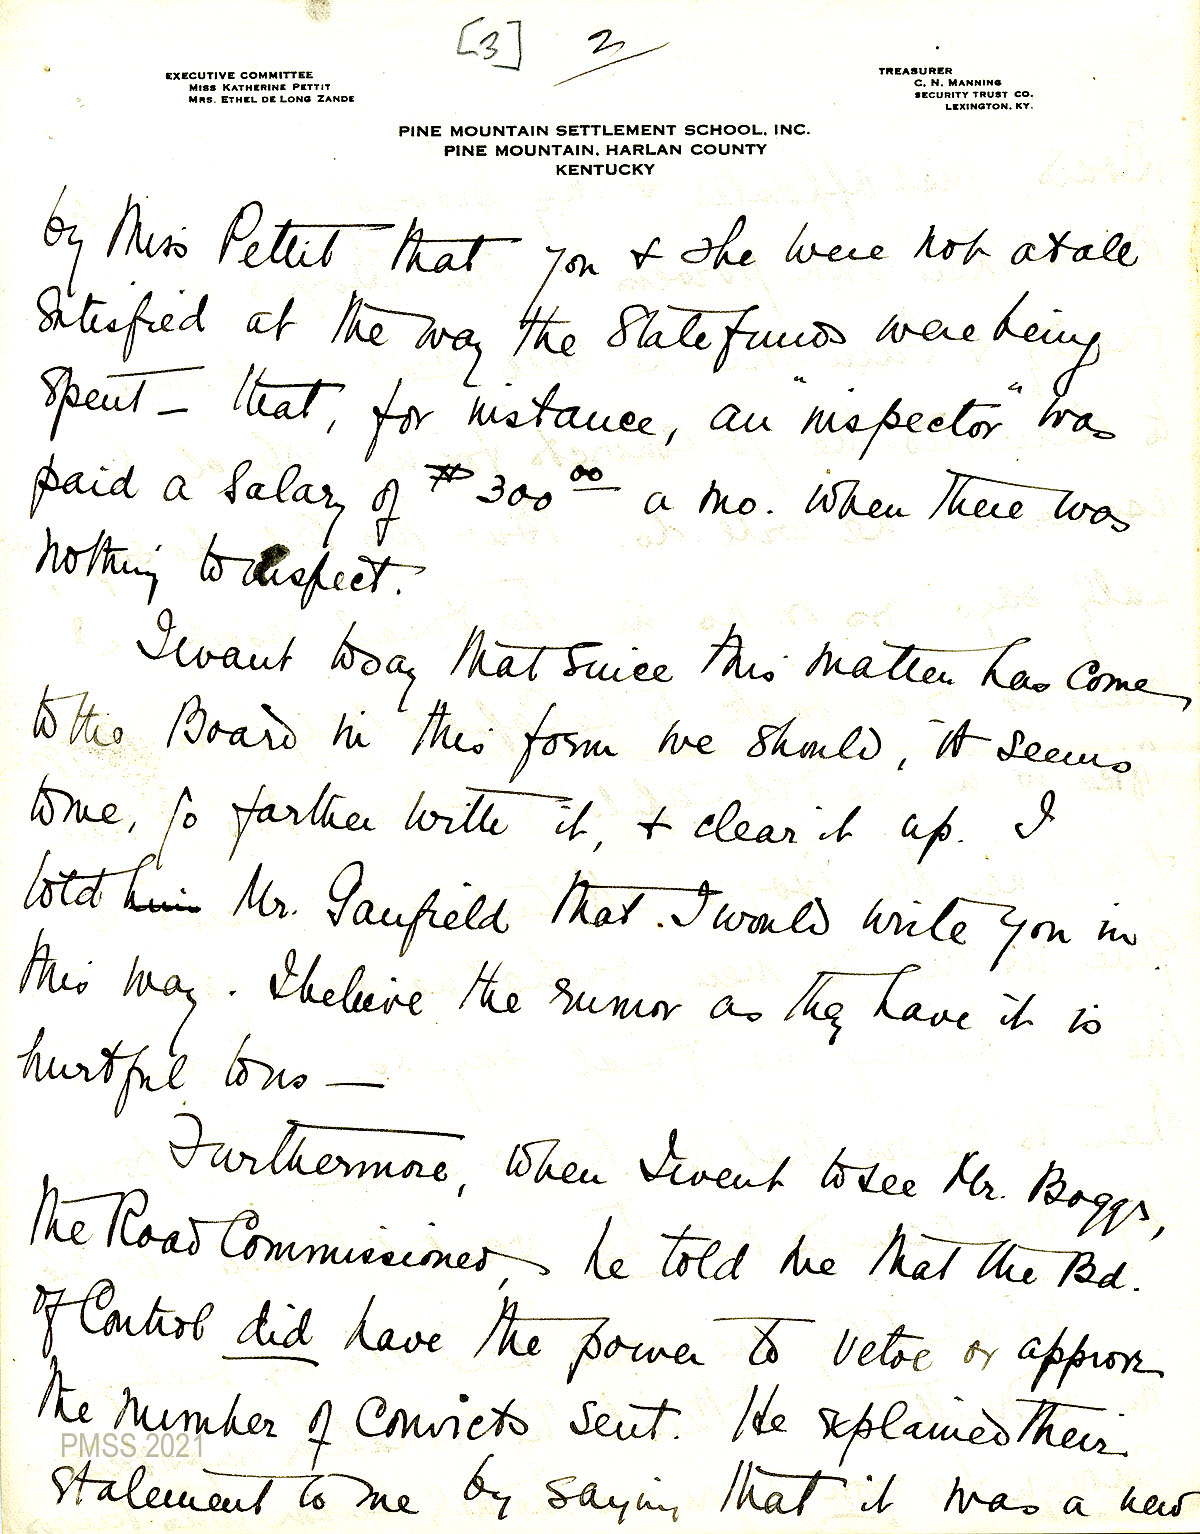 [3] 2
EXECUTIVE COMMITTEE
MISS KATHERINE PETTIT
MRS. ETHEL DE LONG ZANDE
TREASURER
C. N. MANNING
SECURITY TRUST CO.
LEXINGTON, KY.
PINE MOUNTAIN SETTLEMENT SCHOOL, INC.
PINE MOUNTAIN, HARLAN COUNTY
KENTUCKY
by Miss Pettit that you & she were not at all
satisfied at the way the State funds were being
spent – that, for instance, an "inspector" was
paid a salary of $300.00 a mo. when there was
nothing to inspect.
I want to say that since this matter has come
to the Board in this form we should, it seems
to me, go farther with it, & clear it up. I
told him Mr. Ganfield that I would write you in
this way. I believe the rumor as they have it is
hurtful to us —
Furthermore, when I went to see Mr. Boggs,
the Road Commissioner, he told me that the Bd.
of Control did have the power to vetoe or approve
the number of convicts sent. He explained their
statement to me by saying that it was a new
PMSS 2021